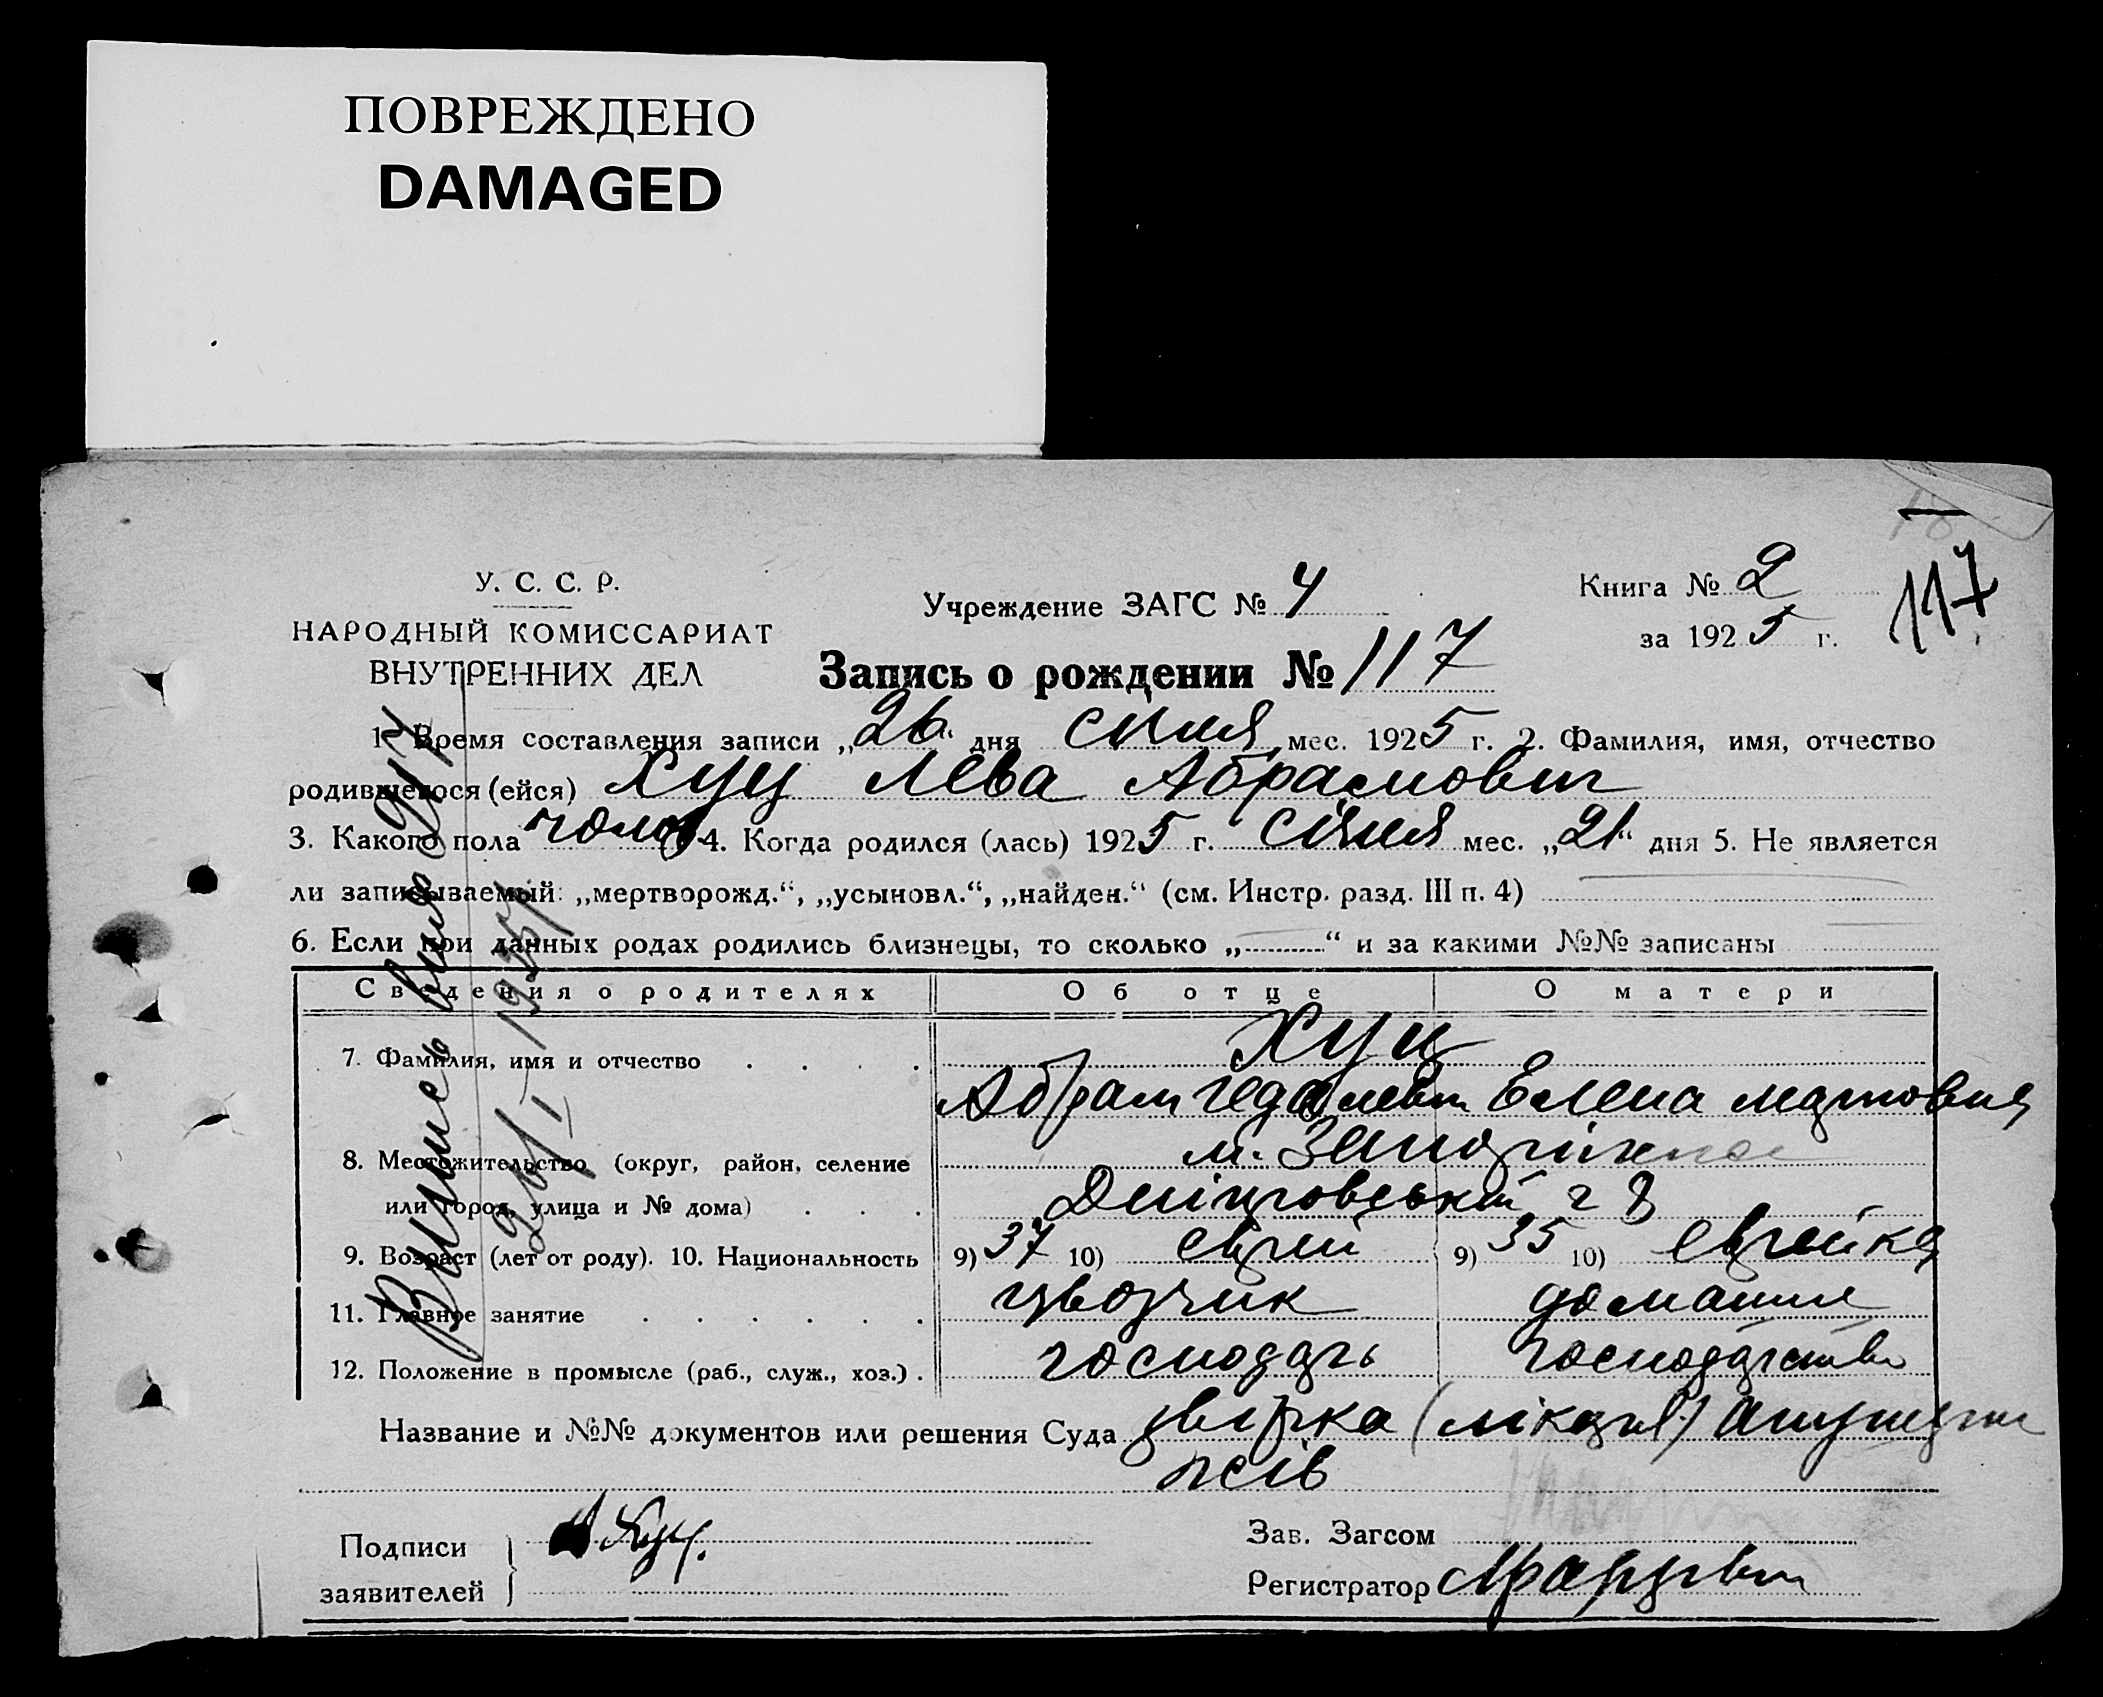 ПОВРЕЖДЕНО
DAMAGED
У. С. С. Р.
НАРОДНЫЙ КОМИССАРИАТ
ВНУТРЕННИХ ДЕЛ
Учреждение ЗАГС № 4
Книга № 2
за 1925 г.
117
Запись о рождении № 117
1. Время составления записи „26“ дня січня мес. 1925 г. 2. Фамилия, имя, отчество
родившегося (ейся) Хуц Лева Абрамович
3. Какого пола чолов 4. Когда родился (лась) 1925 г. січня мес. „21“ дня 5. Не является
ли записываемый: „мертворожд.“, „усыновл.“, „найден.“ (см. Инстр. разд. III п. 4)
6. Если при данных родах родились близнецы, то сколько „ “ и за какими №№ записаны
Сведения о родителях Об отце О матери
7. Фамилия, имя и отчество Хуц
Абрам Елена
8. Местожительство (округ, район, селение м.
или город, улица и № дома)
9. Возраст (лет от роду). 10. Национальность 9) 37 10) еврей 9) 35 10) еврейка
11. Главное занятие домашнє
12. Положение в промысле (раб., служ., хоз.) господарь господарство
Название и №№ документов или решения Суда
Подписи
заявителей
Хуц.
Зав. Загсом
Регистратор